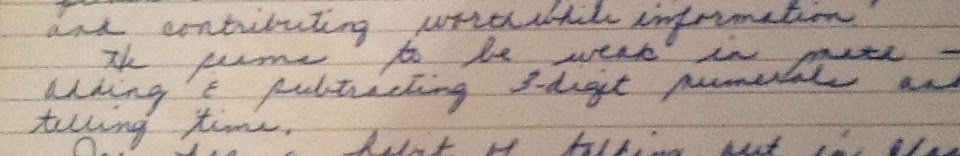 and contributing worthwhile information
He seems to be weak in math -
adding & subtracting 3-digit numerals and
telling time.
has a habit of talking out in